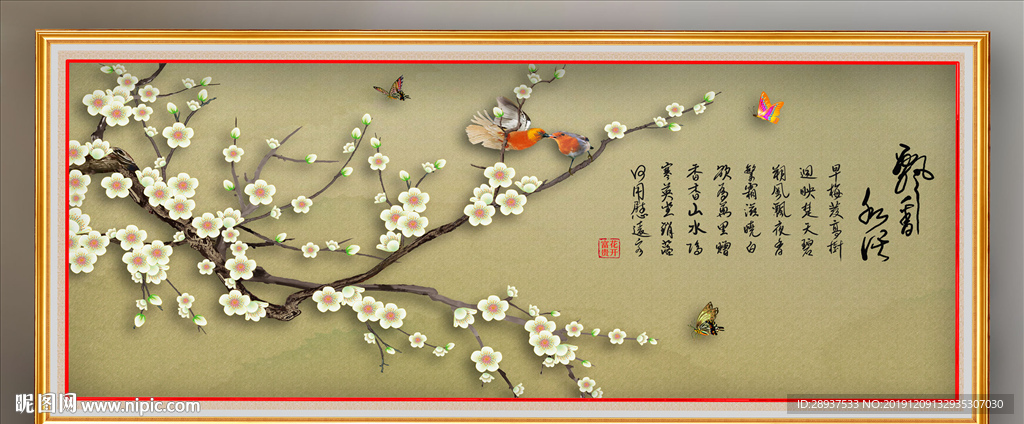 飘香
早梅发高樹
迥映楚天碧
朔風飄夜香
繁霜滋曉白
欲為萬里贈
杳杳山水隔
寒英坐銷落
何用慰遠客
花开
富贵
昵图网 www.nipic.com
ID:28937533 NO:20191209132935307030